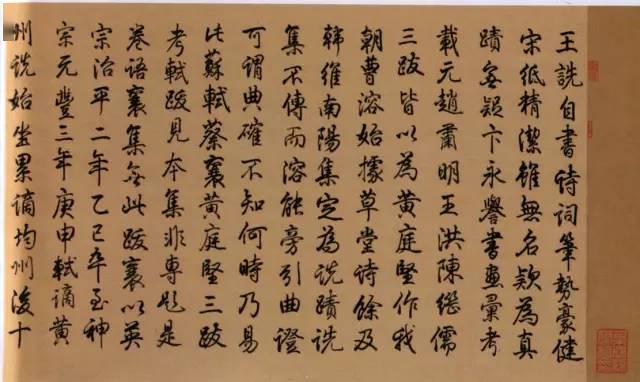 王詵自書诗词筆勢豪健
宋紙精潔雖無名款為真
蹟無疑卞永譽書畫彙考
載元趙肅明王洪陳繼儒
三跋皆以為黄庭堅作我
朝曹溶始據草堂诗餘及
韩維南陽集定為詵蹟詵
集不傳而溶能旁引曲證
可谓典確不知何時乃易
此蘇軾蔡襄黄庭堅三跋
考軾跋見本集非專題是
卷语襄集無此跋襄以英
宗治平二年乙巳卒至神
宗元豐三年庚申軾谪黄
州詵始坐累谪均州後十